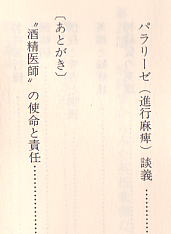 パラリーゼ(進行麻痺)談義…………
〔あとがき〕
“酒精医師”の使命と責任…………